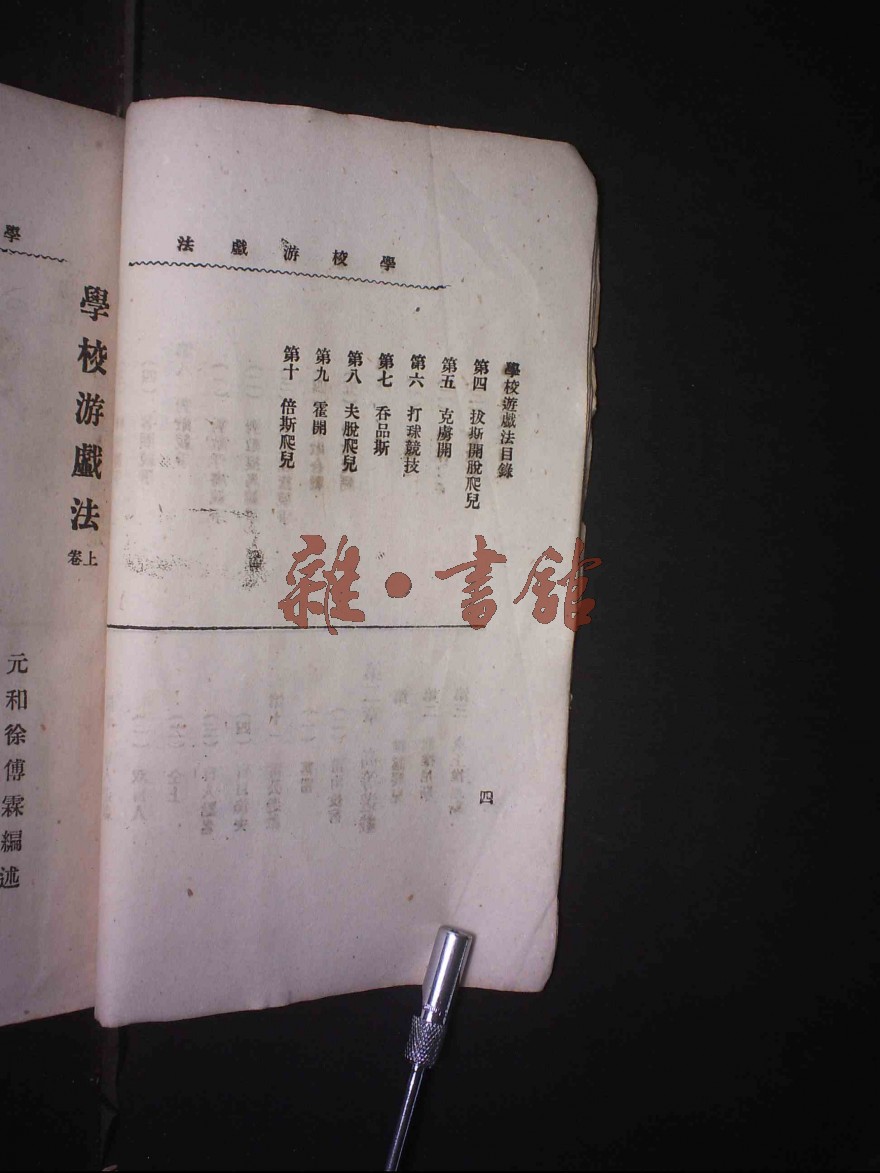 學校游戲法
學校遊戲法目錄
第四 拔斯開脫爬兒
第五 克虜開
第六 打球競技
第七 呑品斯
第八 夫脫爬兒
第九 霍開
第十 倍斯爬兒
四
學
學校游戲法 卷上
元和徐傅霖編述
雜·書館